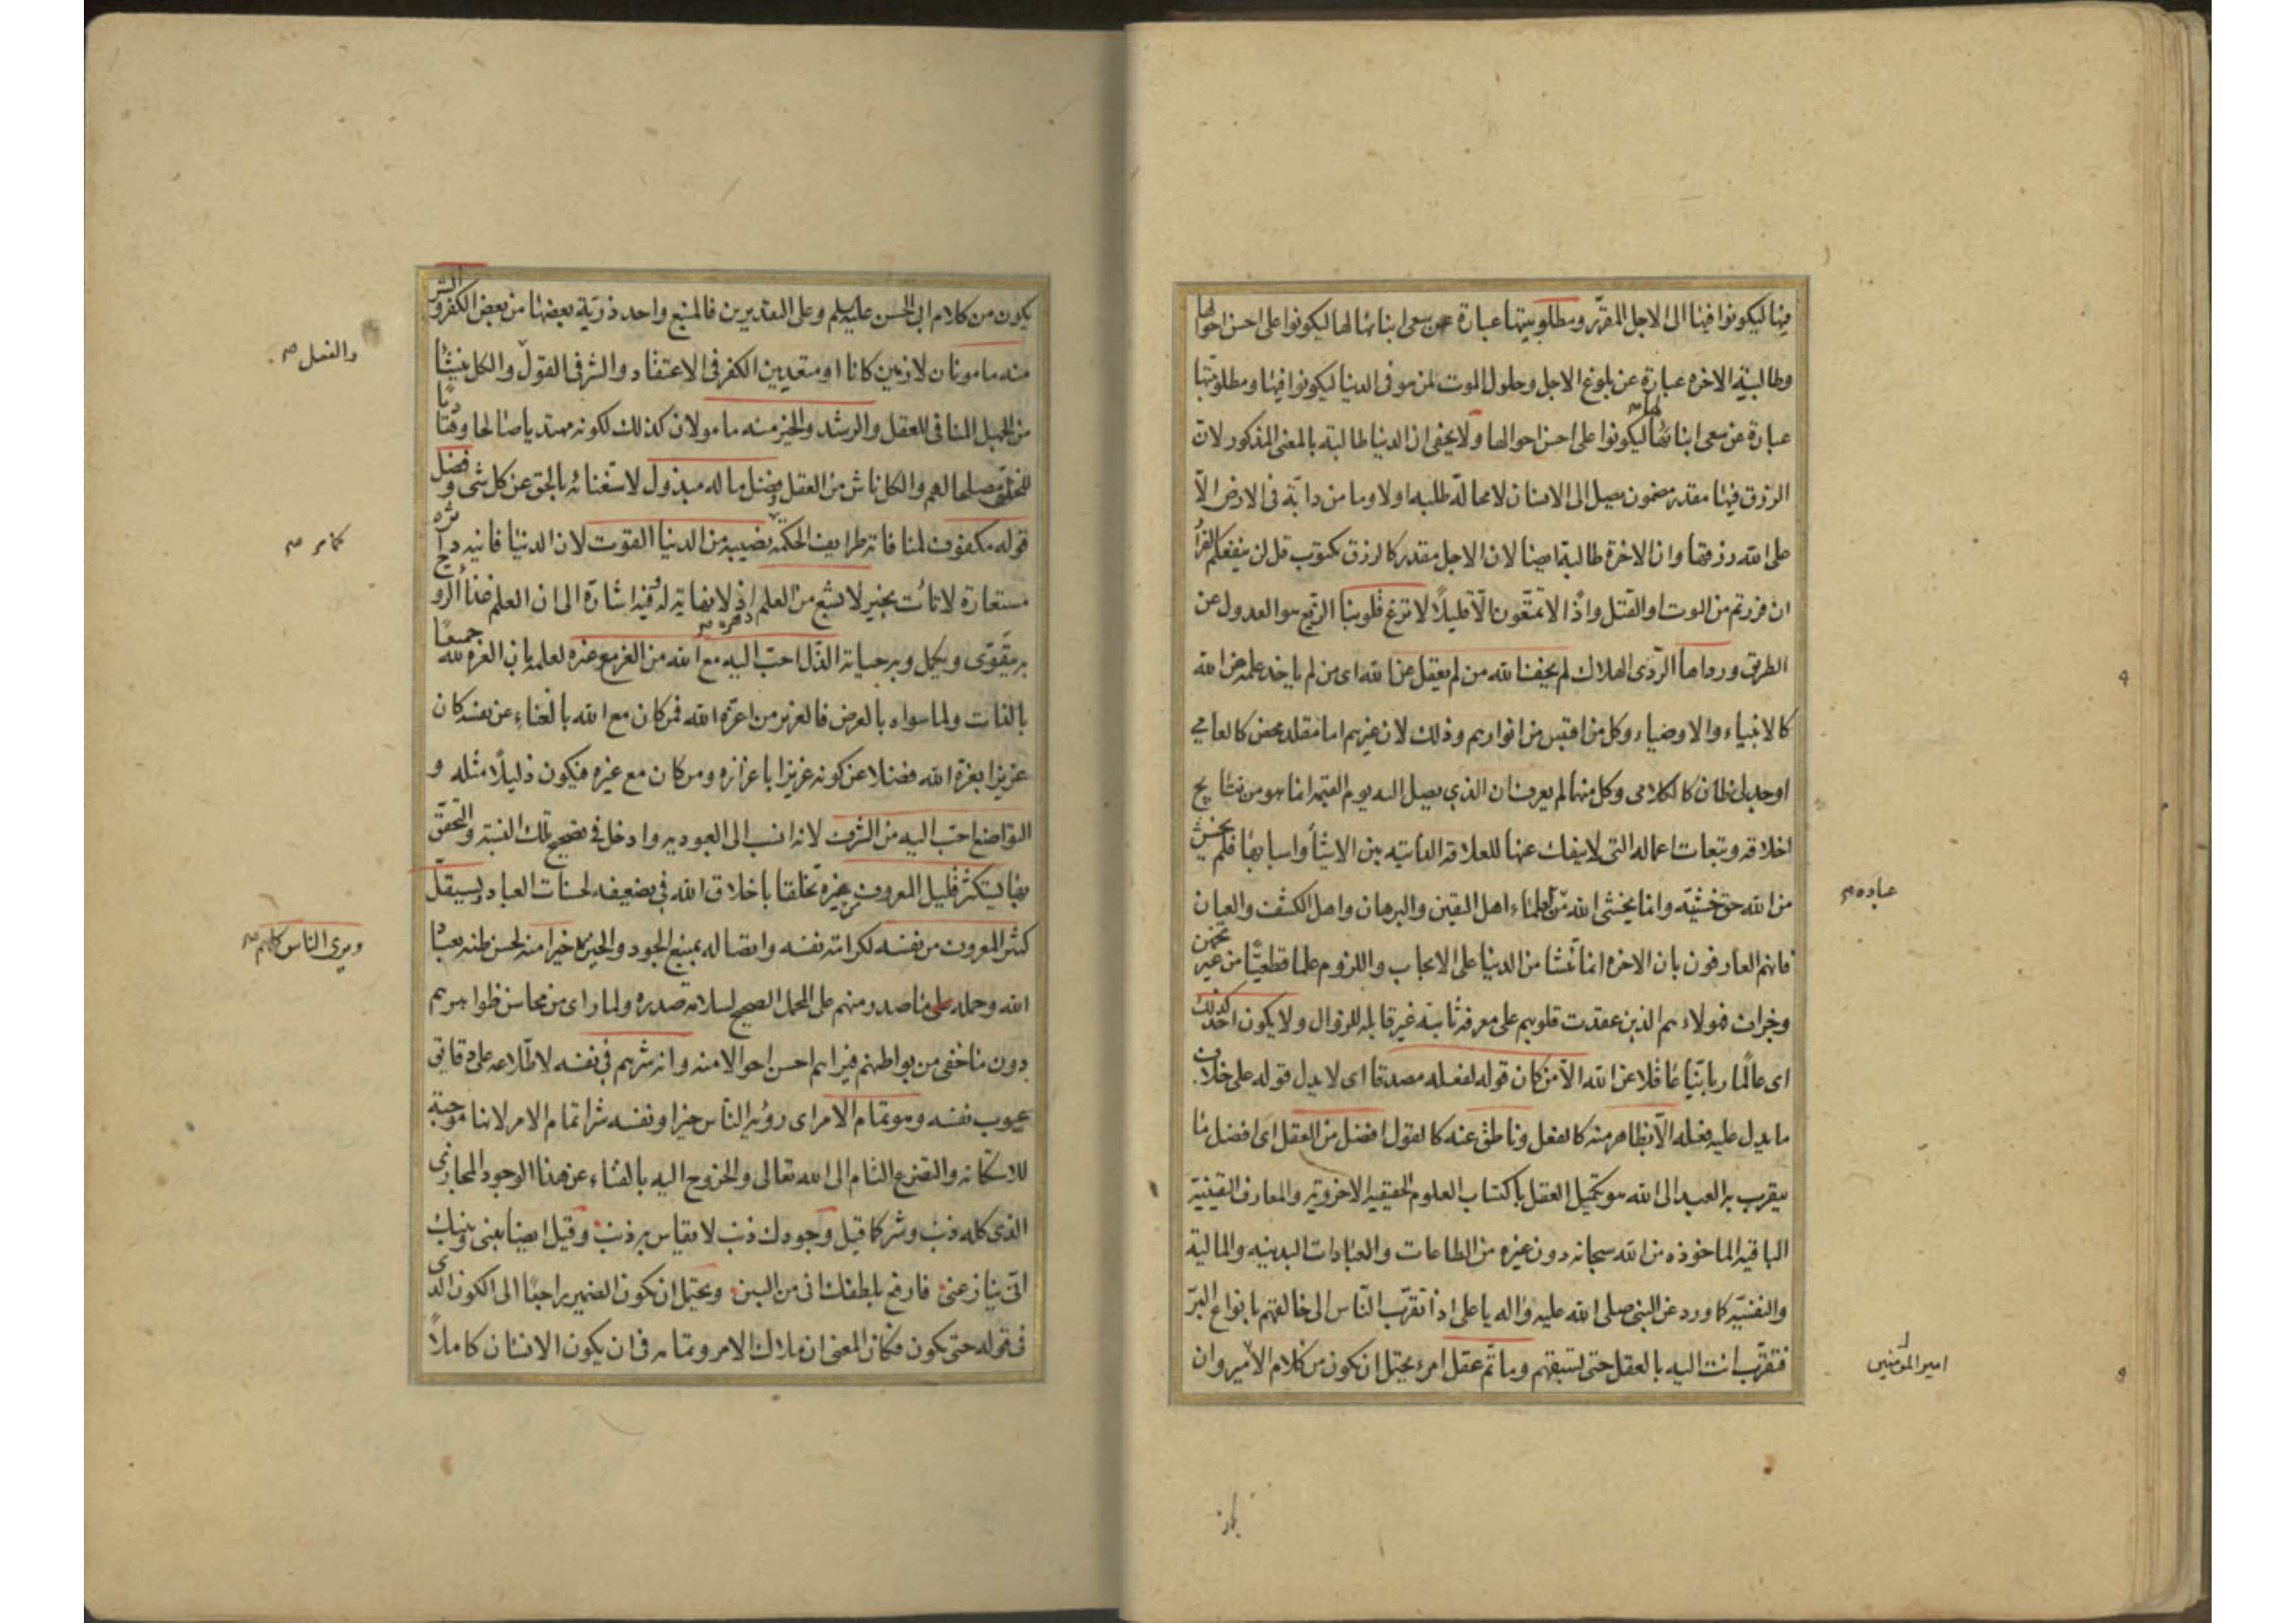 فيها ليكونوا فيها الى الاجل المقرّر ومطلوبيتها عبارة عن سعى ابنائها لها ليكونوا على احسن احوالها
وطالبيّة الاخره عبارة عن بلوغ الاجل وحلول الموت لمن هو فى الدنيا ليكونوا فيها ومطلوبيتها
عبارة عن سعى ابنائها لها ليكونوا على احسن احوالها ولا يخفى ان الدنيا طالبة بالمعنى المذكور لان
الرزق فيها مقدر مضمون يصل الى الانسان لا محالة طلبه او لا وما من دابّة فى الارض الّا
على الله رزقها وان الاخرة طالبة ايضا لان الاجل مقدر كالرزق مكتوب قل لن ينفعكم الفرار
ان فررتم من الموت او القتل واذًا لا تمتّعون الّا قليلًا لا تزغ قلوبنا الزيغ هو العدول عن
الطريق ورداها الرّدى الهلاك لم يخف الله من لم يعقل عن الله اى من لم ياخذ علمه عن الله
كالانبياء والاوصياء وكل من اقتبس من انوارهم وذلك لان غيرهم اما مقلد محض كالعامى
او جدلى ظان كالكلامى وكل منهما لم يعرف ان الذى يصل اليه يوم القيمة انما هو من نتايج
اخلاقه وتبعات اعماله التى لا ينفك عنها للعلاقة الذاتيه بين الاشيأ واسبابها فلم يخش
من الله حق خشيته وانما يخشى الله من عباده العلماء اهل اليقين والبرهان واهل الكشف والعيان
فانهم العارفون بان الاخره انما تنشا من الدنيا على الايجاب واللزوم علما قطعيًّا من غير تخمين
وجزاف فهولاء هم الذين عقدت قلوبهم على معرفة ثابتة غير قابلة للزوال ولا يكون احد كذلك
اى عالمًا ربانيّا عاقلا عن الله الا من كان قوله لفعله مصدقا اى لا يدل قوله على خلاف
ما يدل عليه فعله الا بظاهر منه كالفعل وناطق عنه كالقول افضل من العقل اى افضل ما
يتقرب به العبد الى الله هو تكميل العقل باكتساب العلوم الحقيقيه الاخرويّه والمعارف اليقينيّة
الباقيه الماخوذه من الله سبحانه دون غيره من الطاعات والعبادات البدنيه والمالية
والنفسيّه كما ورد عن النبى صلى الله عليه واله يا على اذا تقرّب النّاس الى خالقهم بانواع البرّ
فتقرّب انت اليه بالعقل حتى تسبقهم وما تمّ عقل امرء يحتمل ان تكون من كلام الامير وان
عباده
امير المؤمنين
يكون من كلام ابى الحسن عليه السلم وعلى التقديرين فالمنبع واحد ذرّية بعضها من بعض الكفر والشر
منه مامونان لازمين كانا او متعديين الكفر فى الاعتقاد والشر فى القول والكل ينشأ
من الجهل المنافى للعقل والرشد والخير منه مامولان كذلك لكونه مهتديا صالحا وهاديا
للخلق مصلحا لهم والكل ناش من العقل وفضل ماله مبذول لاستغنائه بالحق عن كل شى وفضل
قوله مكفوف لمنافاته طرايف الحكمة نصيبه من الدنيا القوت لان الدنيا فانيه
مستعارة لا تاتى بخير لا يشبع من العلم دهره اذ لا نهاية له وفيه اشارة الى ان العلم غذأ الروح
به يتقوّى ويكمل وبه حياته الذّل احبّ اليه مع الله من العز مع غيره لعلمه بان العزه لله جميعًا
بالذات ولما سواه بالعرض فالعزيز من اعزّه الله فمن كان مع الله بالفناء عن نفسه كان
عزيزا بعزة الله فضلا عن كونه عزيزا باعزازه ومن كان مع غيره فيكون ذليلًا مثله و
التواضع احبّ اليه من الشرف لانه انسب الى العبوديه وادخل فى تصحيح تلك النسبة والتحقّق
بها يستكثر قليل المعروف من غيره تخلقا باخلاق الله فى تضعيفه لحسنات العباد ويستقلّ
كثير المعروف من نفسه لكرامة نفسه واتصاله بمنبع الجود والخير خيرا منه لحسن ظنه بعباد
الله وحمله ما صدر منهم على المحمل الصحيح لسلامة صدره ولما راى من محاسن ظواهرهم
دون ما خفى من بواطنهم فيراهم احسن احوالا منه وانه شرهم فى نفسه لاطّلاعه على دقائق
عيوب نفسه وهو تمام الامر اى رؤية الناس خيرا ونفسه شرا تمام الامر لانها موجبة
للاستكانه والتضرع التام الى الله تعالى والخروج اليه بالفناء عن هذا الوجود المجازى
الذى كله ذنب وشر كما قيل وجودك ذنب لا يقاس به ذنب وقيل ايضا بينى وبينك
انّى ينازعنى فارفع بلطفك انى من البين ويحتمل ان تكون الضمير راجعًا الى الكون الذى
فى قوله حتى يكون فكان المعنى ان ملاك الامر وتمامه فى ان يكون الانسان كاملاً
والفعل
كما مر
ويرى الناس كلهم